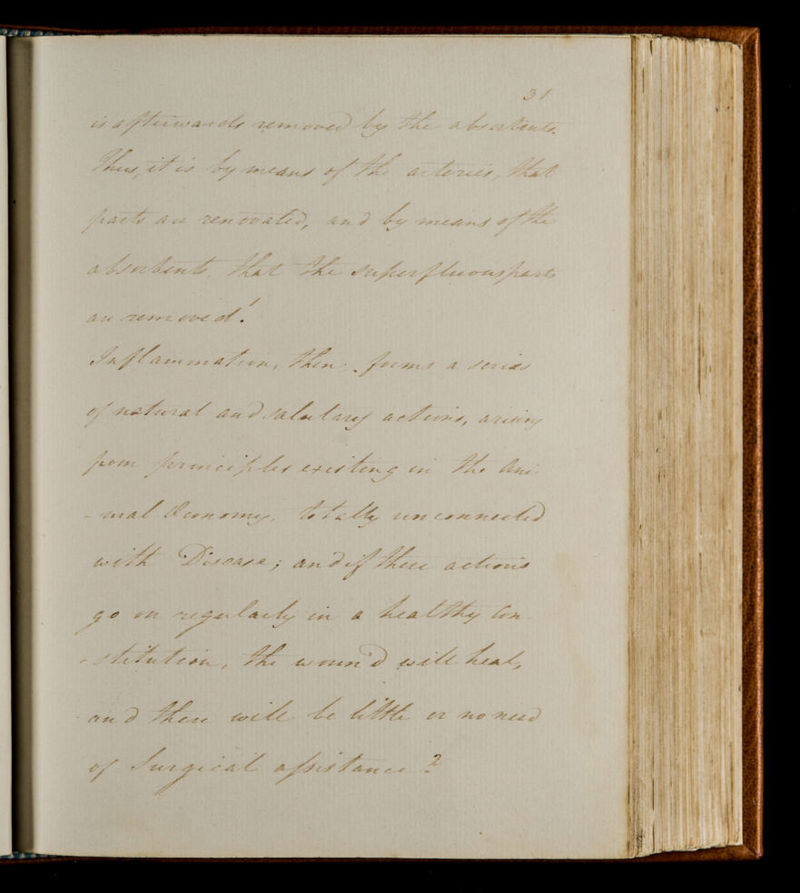 31
is afterwards removed by the absorbents.
Thus, it is by means of the arteries, that
parts are renovated, and by means of the
absorbents, that the superfluous parts
are removed!
Inflammation, then, forms a series
of natural and salutary actions, arising
from principles existing in the Ani-
-mal Œconomy, totally unconnected
with Disease; and if these actions
go on regularly in a healthy Con-
-stitution, the wound will heal,
and there will be little or no need
of Surgical assistance 2